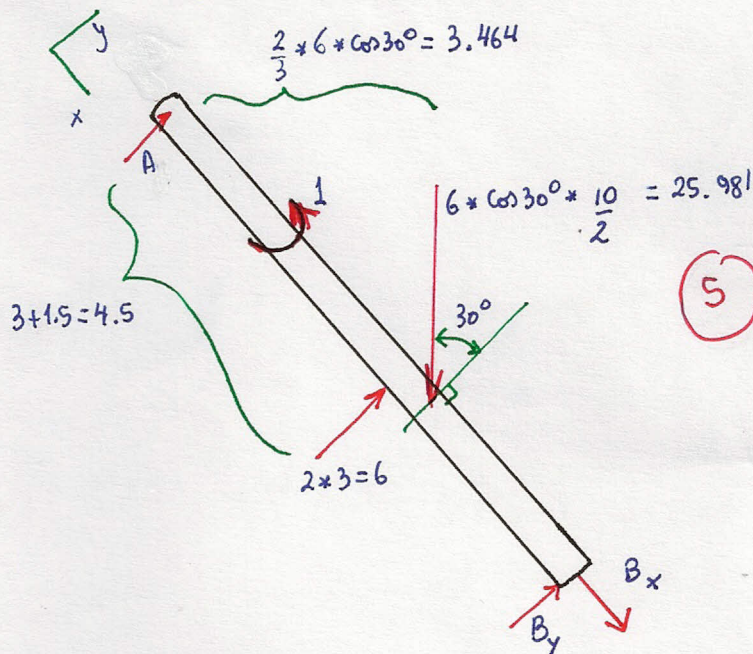 y
x
2/3 * 6 * cos30° = 3.464
A
1
6 * cos30° * 10/2 = 25.981
5
30°
3+1.5=4.5
2*3=6
Bx
By